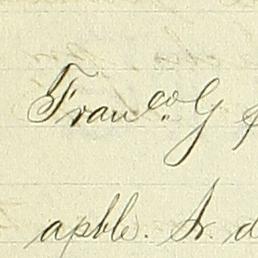 Fran.co G
apble. Sr. d